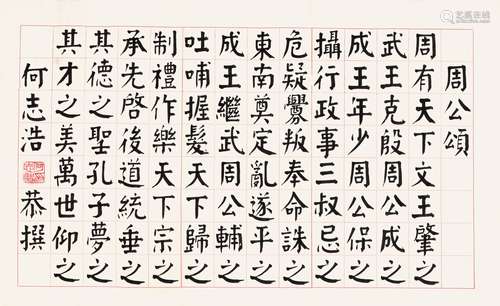 周公頌
周有天下文王肇之
武王克殷周公成之
成王年少周公保之
攝行政事三叔忌之
危疑釁叛奉命誅之
東南奠定亂遂平之
成王繼武周公輔之
吐哺握髮天下歸之
制禮作樂天下宗之
承先啓後道統垂之
其德之聖孔子夢之
其才之美萬世仰之
何志浩 恭撰